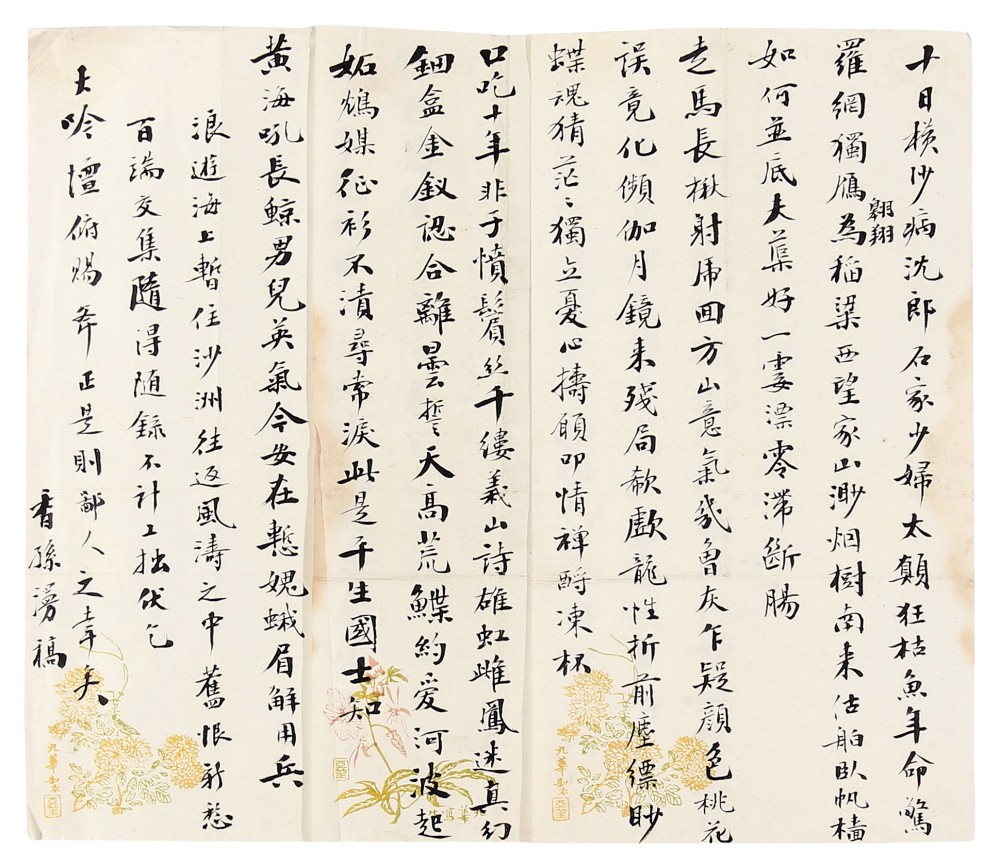 十日橫沙病沈郎石家少婦太顛狂枯魚年命驚
羅網獨鴈為稻粱西望家山渺烟樹南来估舶臥帆檣
翱翔
如何並底夫蕖好一霎漂零滯斷腸
走馬長楸射虎回方山意氣幾曾灰乍疑顏色桃花
誤竟化頻伽月鏡来殘局欷歔龍性折前塵縹眇
蝶魂猜茫々獨立憂心擣願叩情禪酹凍杯
口吃十年非子憤鬢絲千縷義山詩雄虹雌鳳迷真幻
鈿盒金釵認合離曇誓天高荒鰈約愛河波起
妬鴆媒征衫不漬尋常淚此是平生國士知
黃海吼長鯨男兒英氣今安在慙媿蛾眉解用兵
浪遊海上暫住沙洲往返風濤之中舊恨新愁
百端交集隨得随錄不計工拙伏乞
大吟壇俯賜斧正是則鄙人之幸矣
香孫漫稿